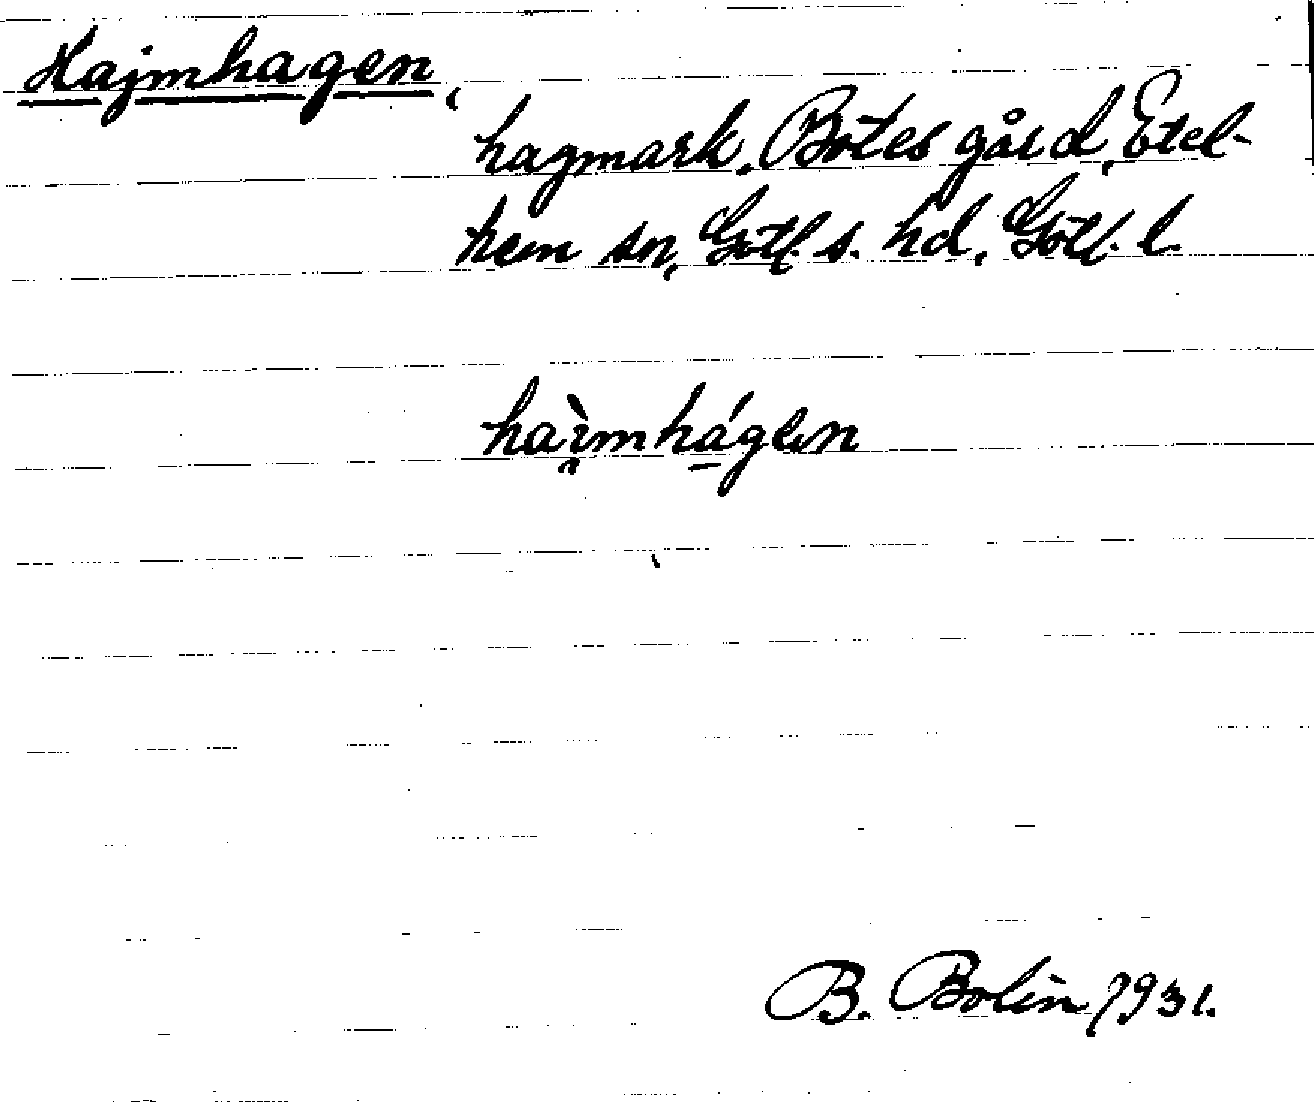 Hajmhagen,
hagmark. Botes gård, Etel-
hem sn, Gotl. s. hd, Gotl. l.
haìmhágen
B. Bolin 1931.